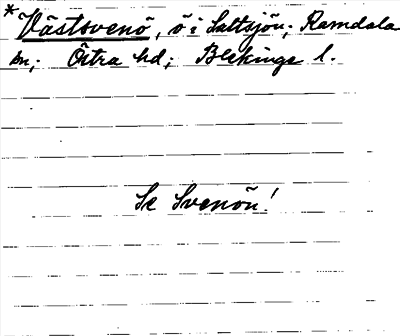 *Västsvenö, ö i Saltsjön; Ramdala
sn; Östra hd; Blekinge l.
Se Svenön!